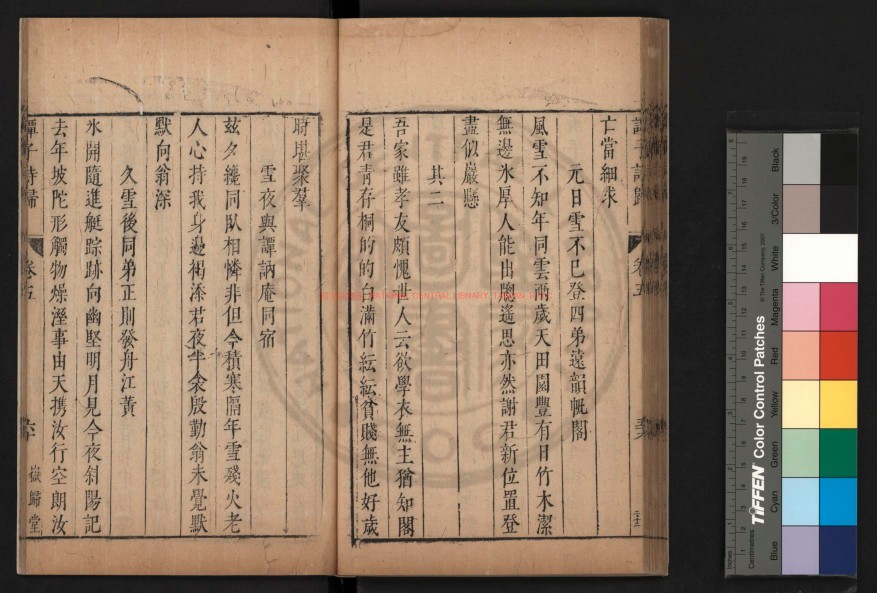 譚子詩歸 卷五
亡當細求
元日雪不已登四弟遠韻
風雪不知年同雲兩歲天田園豐有日竹木潔
無邊氷厚人能出
遙思亦然謝君新位置登
盡似巖懸
其二
吾家雖孝友頗愧世人云欲學衣無主猶知閣
是君靑存桐的的白滿竹紜紜貧賤無他好歲
時堪聚羣
雪夜與譚訥庵同宿
玆夕纔同臥相憐非但今積寒隔年雪殘火老
人心持我身邊褐添君夜半衾殷勤翁未覺默
默向翁深
久雪後同弟正則發舟江黃
氷開隨進艇踪跡向幽堅明月見今夜斜陽記
去年坡陀形觸物燥溼事由天携汝行空朗汝
譚子詩歸 卷五
嶽歸堂
TIFFEN Color Control Patches
© The Tiffen Company, 2007
Blue
Cyan
Green
Yellow
Red
Magenta
White
3/Color
Black
Centimetres
Inches